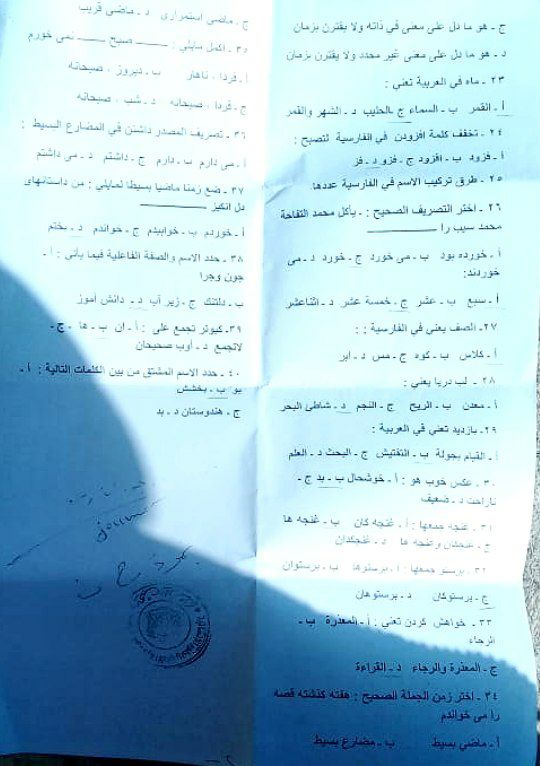 ج - هو ما دل على معنى في ذاته ولا يقترن بزمان
د - هو ما دل على معنى غير محدد ولا يقترن بزمان
٢٣ - ماه في العربية تعني :
أ - القمر ب - السماء ج - الحليب د - الشهر والقمر
٢٤ - تخفف كلمة افزودن في الفارسية لتصبح :
أ - فزود ب - افزود ج - فزو د - فز
٢٥ - طرق تركيب الاسم في الفارسية عددها:
٢٦ - اختر التصريف الصحيح : يأكل محمد التفاحة
محمد سيب را
أ - خورده بود ب - می خورد ج - خورد د - می
خوردند:
أ - سبع ب - عشر ج - خمسة عشر د - اثناعشر
٢٧ - الصف يعني في الفارسية ::
أ - كلاس ب - كوه ج - مس د - ابر
٢٨ - لب دريا يعني :
أ - معدن ب - الريح ج - النجم د - شاطئ البحر
٢٩ - بازديد تعني في العربية :
أ - القيام بجولة ب - التفتيش ج - البحث د - العلم
٣٠ - عكس خوب هو : أ - خوشحال ب - بد ج -
ناراحت د - ضعيف
٣١ - غنجه جمعها : أ - غنجه كان ب - غنجه ها
ج - غنجكان وغنجه ها د - غنجكدان
٣٢ - پرستو جمعها : أ - پرستوها ب - پرستوان
ج - پرستوكان د - پرستوهان
٣٣ - خواهش كردن تعني : أ - المعذرة ب -
الرجاء
ج - المعذرة والرجاء د - القراءة
٣٤ - اختر زمن الجملة الصحيح : هفته كذشته قصه
را می خواندم
أ - ماضي بسيط ب - مضارع بسيط
ج - ماضي استمراري د - ماضي قريب
٣٥ - اكمل مايلي : صبح نمی خورم
أ - فردا ، ناهار ب - ديروز ، صبحانه
ج - فردا ، صبحانه د - شب ، صبحانه
٣٦ - تصريف المصدر داشتن في المضارع البسيط :
أ - می دارم ب - دارم ج - داشتم د - می داشتم
٣٧ - ضع زمنا ماضيا بسيطا لمايلي : من داستانهای
دل انكيز
أ - خوردم ب - خوابيدم ج - خواندم د - بختم
٣٨ - حدد الاسم والصفة الفاعلية فيما يأتي : أ -
چون وچرا
ب - دلتنك ج - زير آب د - دانش آموز
٣٩ - كبوتر تجمع على : أ - ان ب - ها ج -
لاتجمع د - أوب صحيحان
٤٠ - حدد الاسم المشتق من بين الكلمات التالية : أ -
بو ب - بخشش
ج - هندوستان د - بد